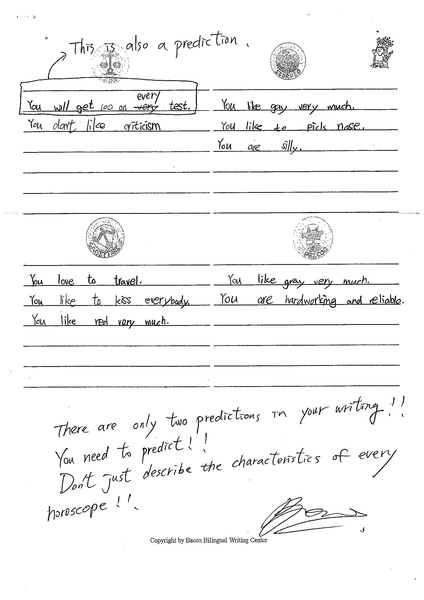 This is also a prediction.
every
You will get 100 on very test.
You don't like criticism
You like gay very much.
You like to pick nose.
You are silly.
You love to travel.
You like to kiss everybody.
You like red very much.
You like gray very much.
You are hardworking and reliable.
There are only two predictions in your writing!!
You need to predict!!
Don't just describe the characteristics of every
horoscope!!
Copyright by Bacon Bilingual Writing Center